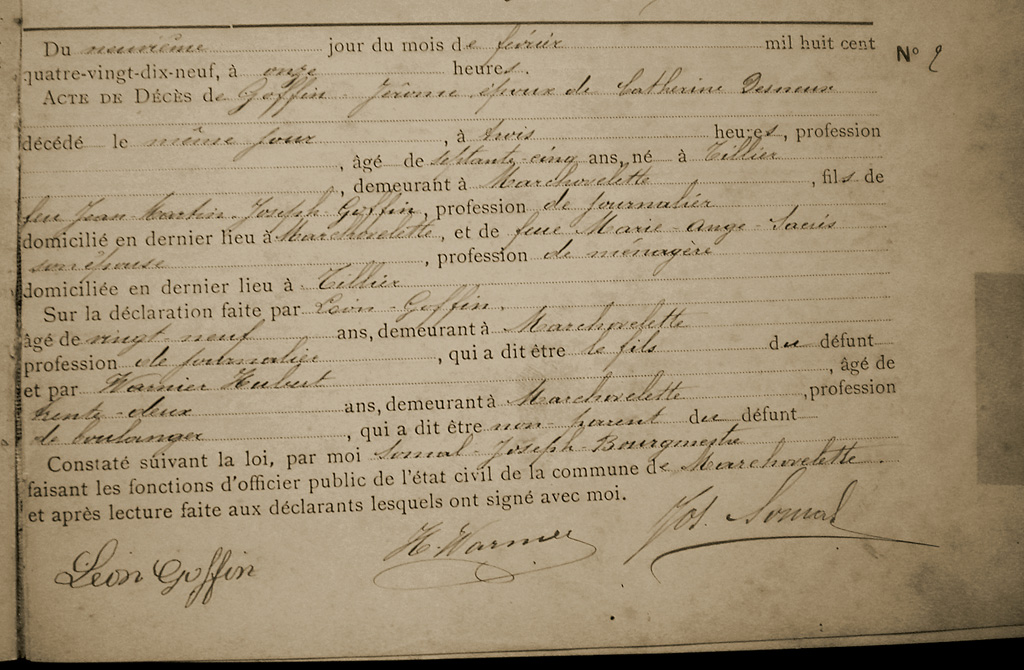 Du neuvième jour du mois de février mil huit cent
N° 2
quatre-vingt-dix-neuf, à onze heures.
ACTE DE DÉCÈS de Goffin Jérôme, époux de Catherine Desneux
décédé le même jour, à trois heures, profession
, âgé de septante-cinq ans, né à Tillier
, demeurant à Marchovelette, fils de
feu Jean-Martin-Joseph Goffin, profession de journalier
domicilié en dernier lieu à Marchovelette, et de feue Marie-Ange-
son épouse, profession de ménagère
domiciliée en dernier lieu à Tillier
Sur la déclaration faite par Léon Goffin,
âgé de vingt-neuf ans, demeurant à Marchovelette
profession de journalier, qui a dit être le fils du défunt
et par Warnier Hubert, âgé de
trente-deux ans, demeurant à Marchovelette, profession
de boulanger, qui a dit être non-parent du défunt
Constaté suivant la loi, par moi Somal-Joseph-Bourgmestre
faisant les fonctions d'officier public de l'état civil de la commune de Marchovelette.
et après lecture faite aux déclarants lesquels ont signé avec moi.
Léon Goffin H. Warnier Jos. Somal